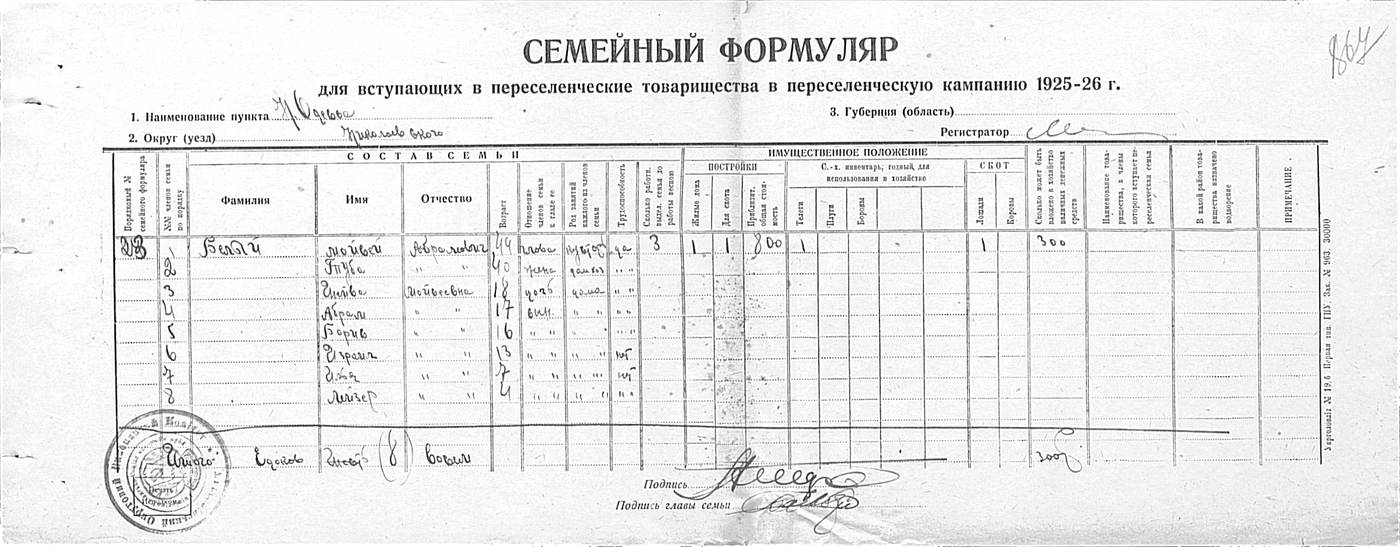 867
СЕМЕЙНЫЙ ФОРМУЛЯР
для вступающих в переселенческие товарищества в переселенческую кампанию 1925-26 г.
1. Наименование пункта Одесса
3. Губерния (область)
2. Округ (уезд) Николаевского
Регистратор
СОСТАВ СЕМЬИ
ИМУЩЕСТВЕННОЕ ПОЛОЖЕНИЕ
Порядковый № семейного формуляра
№№ членов семьи по порядку
Фамилия
Имя
Отчество
Возраст
Отношение членов семьи к главе ее
Род занятий каждого из членов семьи
Трудоспособность
Сколько работн. выдел. семья до работы весною
ПОСТРОЙКИ
Жилые дома
Для скота
Приблизит. общая стоимость
С.-х. инвентарь, годный, для использования в хозяйстве
Телеги
Плуги
Бороны
СКОТ
Лошади
Коровы
Сколько может быть вложено в хозяйство наличных денежных средств
Наименование товарищества, в члены которого вступает переселенческая семья
В какой район товарищества назначено водворение
ПРИМЕЧАНИЕ
23 1 Белый Мойсей Аврамович 44 глова да 3 1 1 800 1 1 300
2 Туба " " 40 жена " "
3 Мойсеевна 18 дочь дома " "
4 Абрам " " 17 сын " " " "
5 Борис " " 16 " " " " " "
6 Израил " " 13 " " " " нт
7 " " 7 " " " " нт
8 Лейзер " " 4 " " " " " "
Итого Едоков (8) восим 300
Подпись
Подпись главы семьи
Укрголовліт № 19,6 Первая тип. ГПУ, Зак. № 963 30000